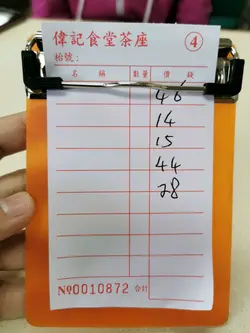 偉記食堂茶座 ④
枱號:
名稱 數量 價錢
46
14
15
44
28
No 0010872 合計